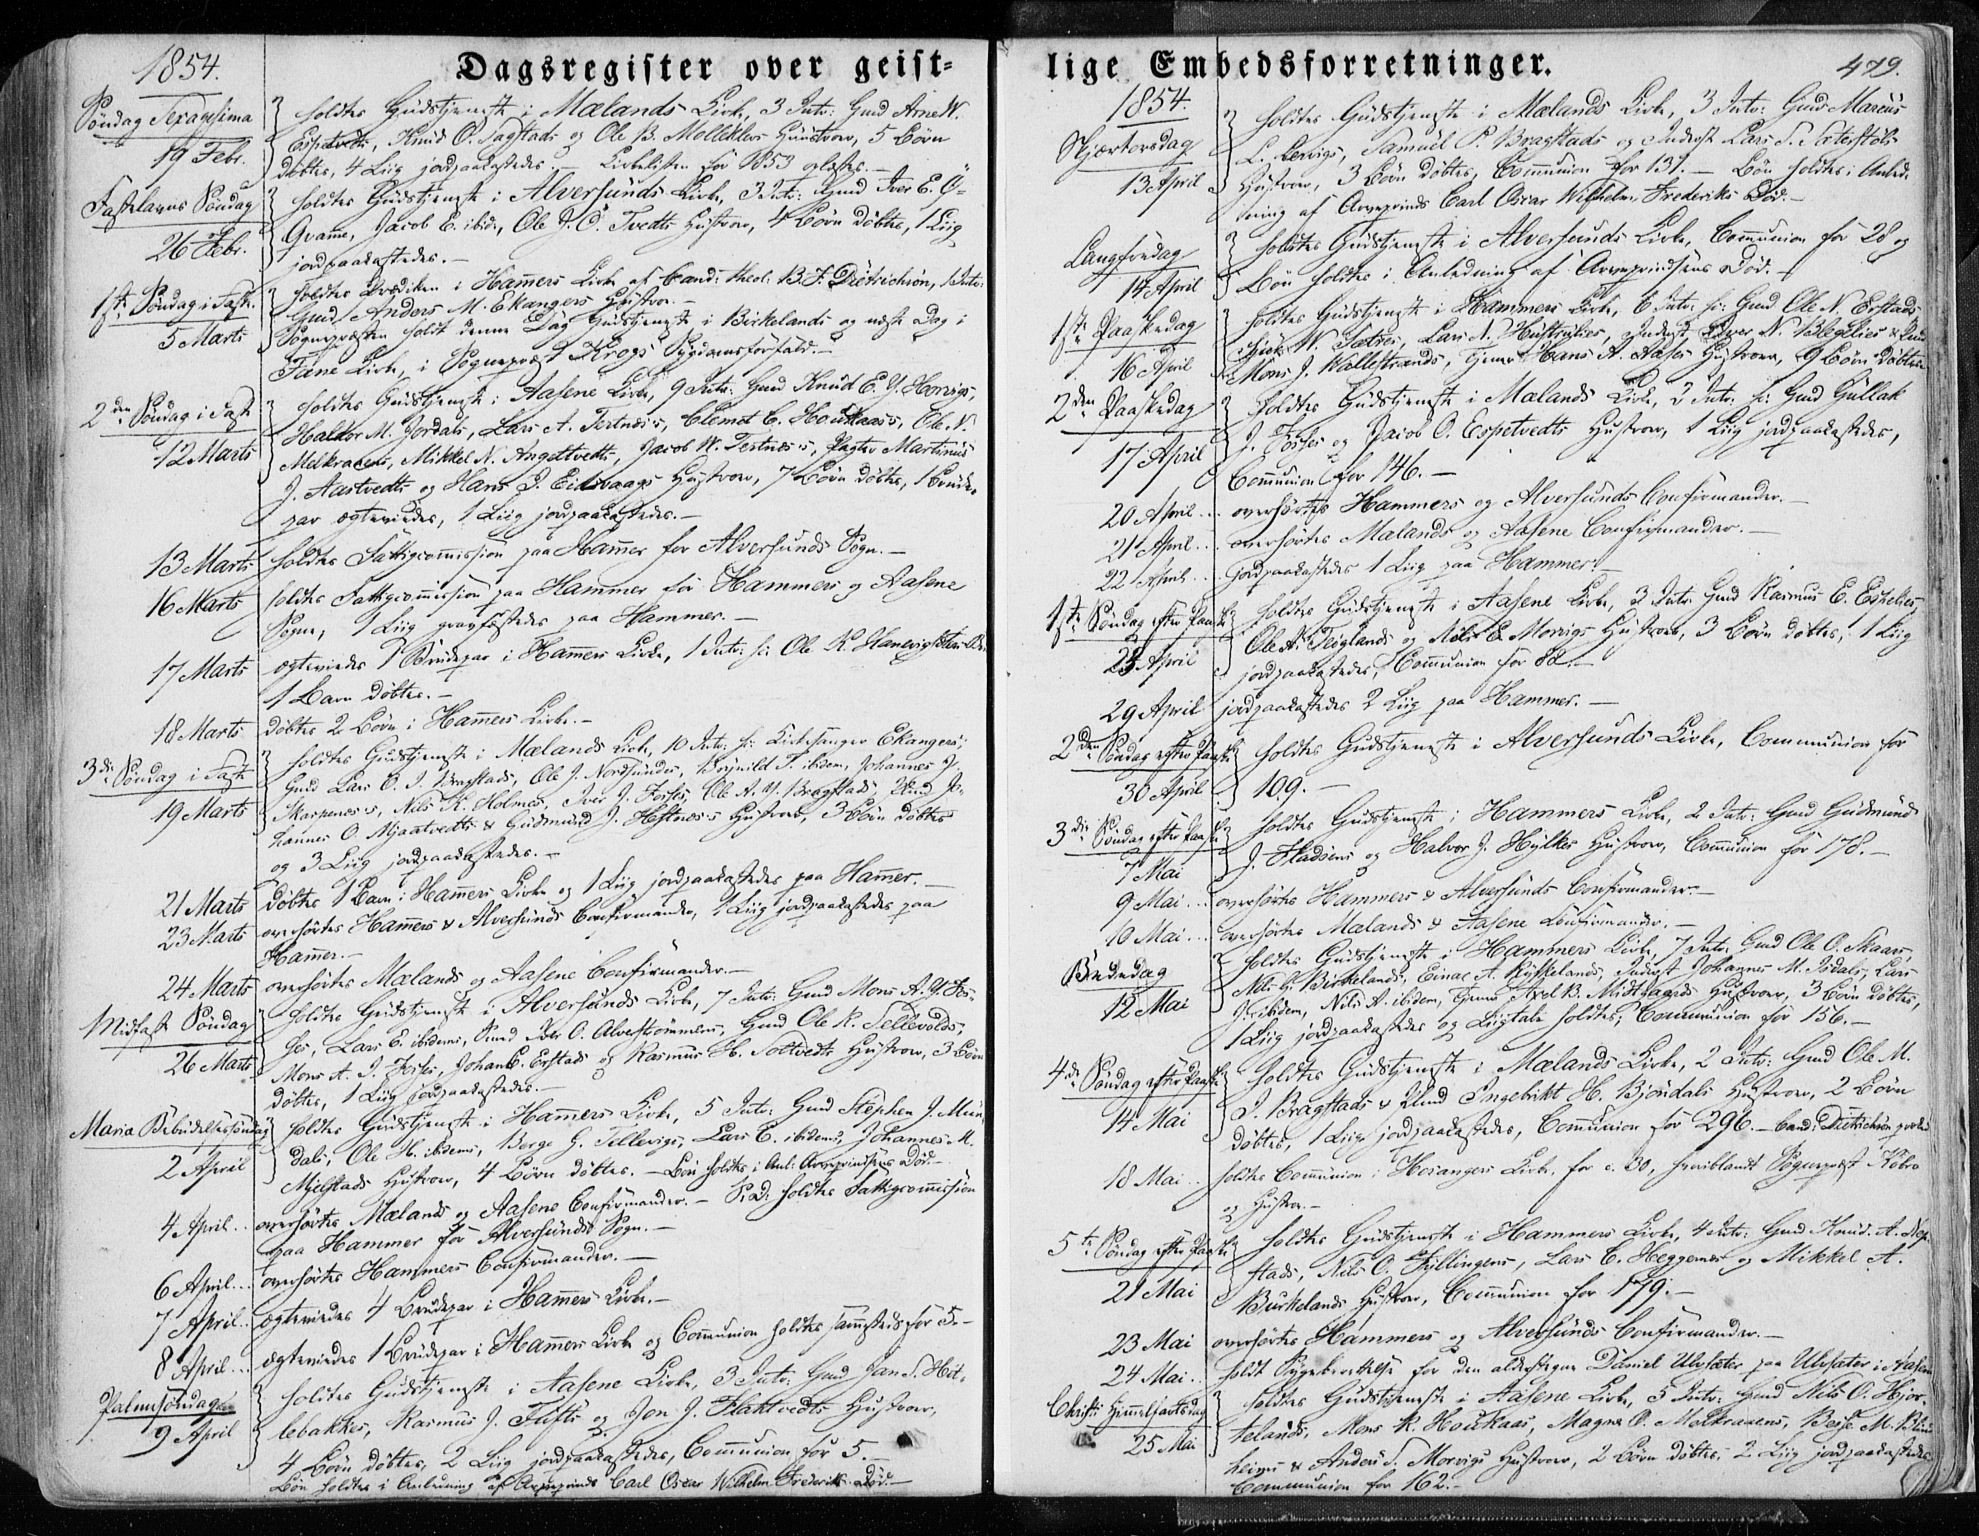 Dagsregister over geist-
1854.
Søndag Sexagesima
19 Febr.
holdtes Gudstjeneste i Mælands Kirke, 3 Intr: Gmd Arne N.
Espetvedts, Knud O. Sagstads og Ole B. Molleklevs Hustroer, 5 Børn
døbtes, 4 Liig jordpaakastedes. – Kirkelisten for 1853 oplæstes. –
Fastelavns Søndag
26 Febr.
holdtes Gudstjeneste i Alversunds Kirke, 3 Intr: Gmd Iver E. Ø-
Qvamme, Jacob E. ibid:, Ole J. Ö. Tvedts Hustroer, 4 Børn døbtes, 1 Liig
jordpaakastedes. –
1ste Søndag i Faste
5 Marts
holdtes Prædiken i Hammers Kirke af Cand: theol: B. F. Dietrichson, 1 Intr:
Gmd Anders M. Ekangers Hustroe. –
Sognepræsten holdt denne Dag Gudstjeneste i Birkelands og næste Dag i
Fane Kirke, i Sognepræst Krogs Sygdomsforfald. –
2den Søndag i Faste
12 Marts
holdtes Gudstjeneste i Aasene Kirke, 9 Intr: Gmd Knud E. Y. Horvigs,
Haldor M. Jordals, Lars A. Tertnæs's, Clemet C. Houkaas's, Ole N.
Melkraaens, Mikkel N. Angeltvedts, Jacob N. Tertnes's, Pagter Martinus
J. Aastvedts og Hans J. Eidsvaags Hustroer, 7 Børn døbtes, 1 Brude-
par ægteviedes, 1 Liig jordpaakastedes. –
13 Marts holdtes Fattigcommission paa Hammer for Alversunds Sogn. –
16 Marts holdtes Fattigcommission paa Hammer for Hammers og Aasene
Sogne, 1 Liig gravfæstedes paa Hammer. –
17 Marts ægteviedes 1 Brudepar i Hammers Kirke, 1 Intr: h: Ole K. Hanevigs
1 Barn døbtes. –
18 Marts døbtes 2 Børn i Hammers Kirke. –
3die Søndag i Faste
19 Marts
holdtes Gudstjeneste i Mælands Kirke, 10 Intr: h: Kirkesanger Ekangers,
Gmd Lars O. J. Bragstads, Ole J. Nordsundes, Brynild T. ibidem, Johannes J.
Skarpenes's, Nils K. Holmes, Iver J. Fosses, Ole A. Y. Bragstads, Jo-
hannes O. Mjaatvedts & Gudmund J. Høstnes's Hustroer, 3 Børn døbtes
og 3 Liig jordpaakastedes. –
21 Marts døbtes 1 Barn i Hammers Kirke og 1 Liig jordpaakastedes paa Hammer. –
23 Marts overhørtes Hammers & Alversunds Confirmander, 1 Liig jordpaakastedes paa
Hammer. –
24 Marts overhørtes Mælands og Aasene Confirmander. –
Midfaste Søndag
26 Marts
holdtes Gudstjeneste i Alversunds Kirke, 7 Intr: Gmd Mons A. Y. Fos-
ses, Lars E. ibidems, O. Alverstrømmens, Gmd Ole K. Tellevolds,
Mons A. J. Fosses, Johan E. Erstads og Rasmus H. Toftvedts Hustroer, 3 Børn
døbtes, 1 Liig jordpaakastedes. –
Maria Bebudelsessøndag
2 April
holdtes Gudstjeneste i Hammers Kirke, 5 Intr: Gmd Stephen J. Mun-
dals, Ole H. ibidems, Børge G. Tellevigs, Lars C. ibidems, Johannes K.
Mjelstads Hustroer, 4 Børn døbtes. – Bøn holdtes i Anl: Arveprindsens Død. –
4 April .. overhørtes Mælands og Aasene Confirmander. – S: D: holdtes Fattigcommission
paa Hammer for Alversunds Sogn. –
6 April ... overhørtes Hammers Confirmander. –
7 April .. ægteviedes 4 Brudepar i Hammers Kirke. –
8 April ... ægteviedes 1 Brudepar i Hammers Kirke og Communion holdtes sammesteds for 5. –
Palmesøndag
9 April
holdtes Gudstjeneste i Aasene Kirke, 3 Intr: Gmd Jan S. Hel-
lebakkes, Rasmus J. Tufts og Jon J. Flaktvedts Hustroer,
4 Børn døbtes, 2 Liig jordpaakastedes, Communion for 5. –
Bøn holdtes i Anledning af Arveprinds Carl Oscar Wilhelm Frederiks Død. –
lige Embedsforretninger.
479.
1854.
Skjærtorsdag
13 April
holdtes Gudstjeneste i Mælands Kirke, 3 Intr: Gmd Marcus
L. Lervigs, Samuel P. Bragstads og Inderst Lars S. Sæterstøls
Hustroer, 3 Børn døbtes, Communion for 131. – Bøn holdtes i Anled-
ning af Arveprinds Carl Oscar Wilhelm Frederiks Død. –
Langfredag
14 April
holdtes Gudstjeneste i Alversunds Kirke, Communion for 28 og
Bøn holdtes i Anledning af Arveprindsens Død. –
1ste Paaskedag
16 April
holdtes Gudstjeneste i Hammers Kirke, 6 Intr: h: Gmd Ole N. Erstads
N. Sætres, Lars N. Inderst Iver N.
Mons J. Vallestrands, Hans A. Aases Hustroer, 9 Børn døbtes
2den Paaskedag
17 April
holdtes Gudstjeneste i Mælands Kirke, 2 Intr: h: Gmd Gullak
J. Fosses og Jacob O. Espetvedts Hustroer, 1 Liig jordpaakastedes,
Communion for 146. –
20 April ... overhørtes Hammers og Alversunds Confirmander. –
21 April ... overhørtes Mælands og Aasene Confirmander. –
22 April .. jordpaakastedes 1 Liig paa Hammer. –
1ste Søndag efter Paaske
23 April
holdtes Gudstjeneste i Aasene Kirke, 3 Intr: Gmd Rasmus E. Eshelies,
Ole A. Teiglands og Nils E. Morvigs Hustroer, 3 Børn døbtes, 1 Liig
jordpaakastedes, Communion for 82. –
29 April jordpaakastedes 2 Liig paa Hammer. –
2den Søndag efter Paaske
30 April
holdtes Gudstjeneste i Alversunds Kirke, Communion for
109. –
3die Søndag efter Paaske
7 Mai
holdtes Gudstjeneste i Hammers Kirke, 2 Intr: Gmd Gudmund
J. Fladsens og Halvor J. Hylkes Hustroer, Communion for 178. –
9 Mai .... overhørtes Hammers & Alversunds Confirmander. –
10 Mai ... overhørtes Mælands & Aasene Confirmander. –
Bededag
12 Mai
holdtes Gudstjeneste i Hammers Kirke, 7 Intr: Gmd Ole O. Skaars,
Nils G. Birkelands, Einar A. Rylkelands, Inderst Johannes M. Isdals, Lars
J. ibidem, Nils A. ibidem, Axel B. Midtgaards Hustroer, 3 Børn døbtes,
1 Liig jordpaakastedes og Liigtale holdtes, Communion for 156. –
4de Søndag efter Paaske
14 Mai
holdtes Gudstjeneste i Mælands Kirke, 2 Intr: Gmd Ole M.
J. Bragstads & Ingebrikt H. Bjøndals Hustroer, 2 Børn
døbtes, 1 Liig jordpaakastedes, Communion for 296. – Cand: Dietrichson
18 Mai .. holdtes Communion i Hosangers Kirke for c. 30, hvoriblandt Sognepræst Kobro
og Hustroe. –
5te Søndag efter Paaske
21 Mai
holdtes Gudstjeneste i Hammers Kirke, 4 Intr: Gmd Knud A. Nep-
stads, Nils O. Fyllingens, Lars C. Heggernes og Mikkel A.
Burkelands Hustroer, Communion for 179. –
23 Mai overhørtes Hammers og Alversunds Confirmander. –
24 Mai .. holdt Sygeberettelse for den aldersteegne Daniel Ulvsæter paa Ulvsæter i Aasene
Christi Himmelfartsdag
25 Mai
holdtes Gudstjeneste i Aasene Kirke, 5 Intr: Gmd Nils O. Hjor-
telands, Mons K. Houkaas, Magne O. Melkraaens, M.
heims & Anders S. Morvigs Hustroer, 2 Børn døbtes, 2 Liig jordpaakastedes
Communion for 162. –